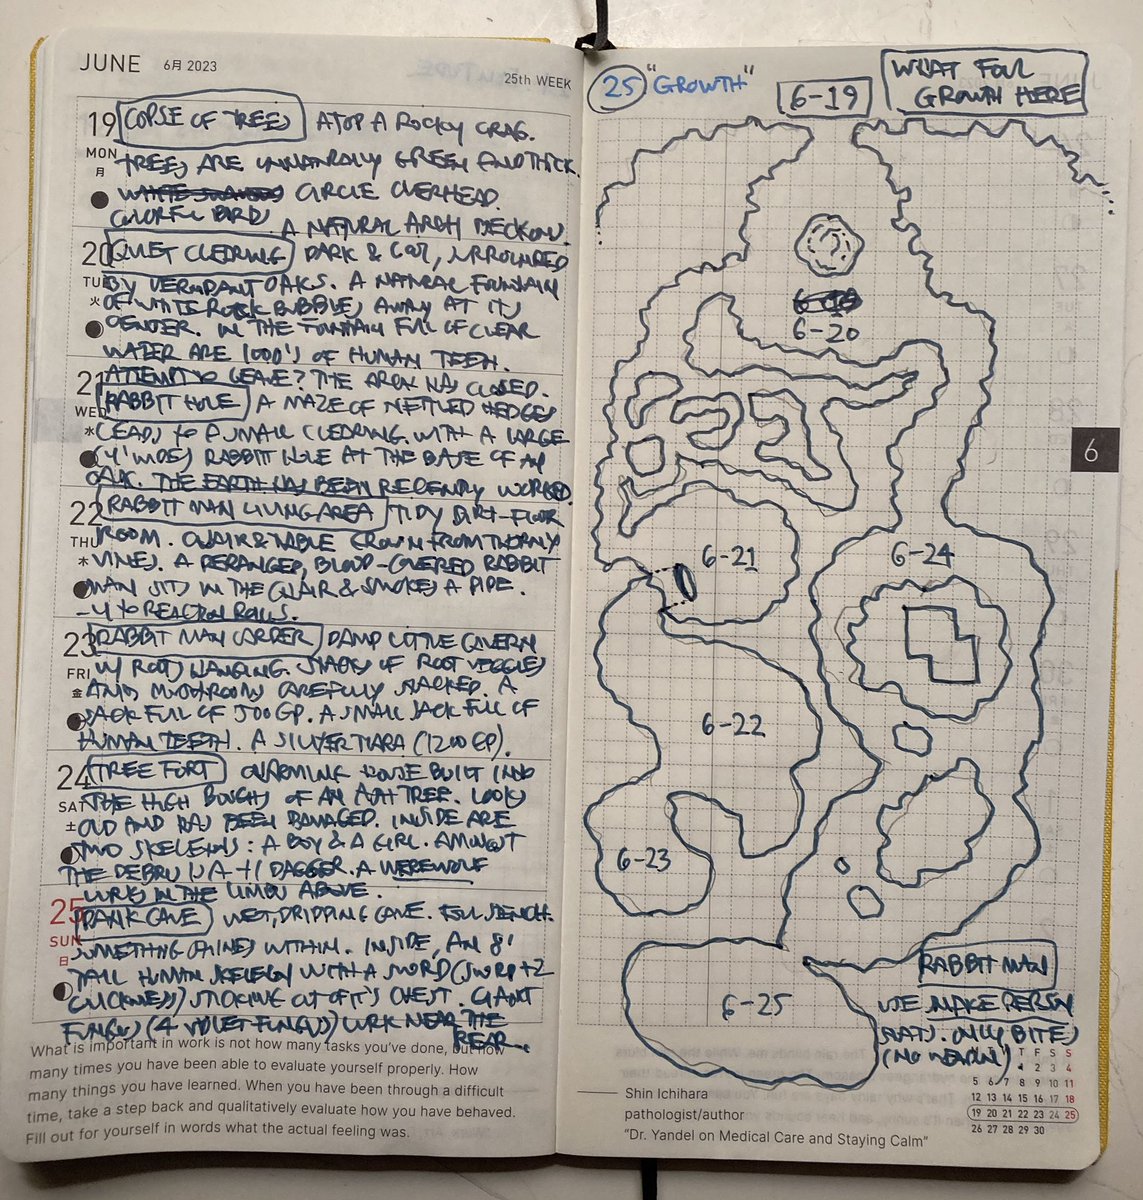 JUNE 6月 2023
25th WEEK
19 COPSE OF TREES ATOP A ROCKY CRAG.
MON TREES ARE UNNATURALLY GREEN AND THICK.
月 CIRCLE OVERHEAD.
COLORFUL BIRDS
A NATURAL ARCH BECKONS.
20 QUIET CLEARING DARK & COOL, SURROUNDED
TUE BY VERDANT OAKS. A NATURAL FOUNTAIN
火 OF WHITE ROCK BUBBLES AWAY AT ITS
CENTER. IN THE FOUNTAIN FULL OF CLEAR
WATER ARE 1000'S OF HUMAN TEETH.
ATTEMPT TO LEAVE? THE ARCH HAS CLOSED.
21 RABBIT HOLE A MAZE OF NETTLED HEDGES
WED LEADS TO A SMALL CLEARING. WITH A LARGE
(4' WIDE) RABBIT HOLE AT THE BASE OF AN
OAK. THE EARTH HAS BEEN RECENTLY WORKED.
22 RABBIT MAN LIVING AREA TIDY DIRT-FLOOR
THU ROOM. CHAIR & TABLE GROWN FROM THORNY
VINES. A DERANGED, BLOOD-COVERED RABBIT
MAN SITS IN THE CHAIR & SMOKES A PIPE.
-4 TO REACTION ROLLS.
23 RABBIT MAN LARDER DAMP LITTLE CAVERN
FRI W/ ROOTS HANGING. STACKS OF ROOT VEGGIES
金 AND MUSHROOMS CAREFULLY STACKED. A
SACK FULL OF 500 GP. A SMALL SACK FULL OF
HUMAN TEETH. A SILVER TIARA (1200 GP).
24 TREE FORT CHARMING HOUSE BUILT INTO
SAT THE HIGH BOUGHS OF AN ASH TREE. LOOKS
土 OLD AND HAS BEEN DAMAGED. INSIDE ARE
TWO SKELETONS: A BOY & A GIRL. AMONGST
THE DEBRIS IS A +1 DAGGER. A WEREWOLF
LURKS IN THE LIMBS ABOVE.
25 DANK CAVE WET, DRIPPING CAVE. FOUL STENCH.
SUN SOMETHING SHINES WITHIN. INSIDE, AN 8'
日 TALL HUMAN SKELETON WITH A SWORD (SWORD +2
QUICKNESS) STICKING OUT OF IT'S CHEST. GIANT
FUNGUS (4 VIOLET FUNGUS) LURK NEAR THE
REAR.
What is important in work is not how many tasks you've done, but how
many times you have been able to evaluate yourself properly. How
many things you have learned. When you have been through a difficult
time, take a step back and qualitatively evaluate how you have behaved.
Fill out for yourself in words what the actual feeling was.
25 "GROWTH"
6-19
WHAT FOUL
GROWTH HERE
6-20
6
6-21
6-24
6-22
6-23
6-25
RABBIT MAN
USE
STATS. ONLY BITES
Shin Ichihara
pathologist/author
"Dr. Yandel on Medical Care and Staying Calm"
T F S S
1 2 3 4
5 6 7 8 9 10 11
12 13 14 15 16 17 18
19 20 21 22 23 24 25
26 27 28 29 30